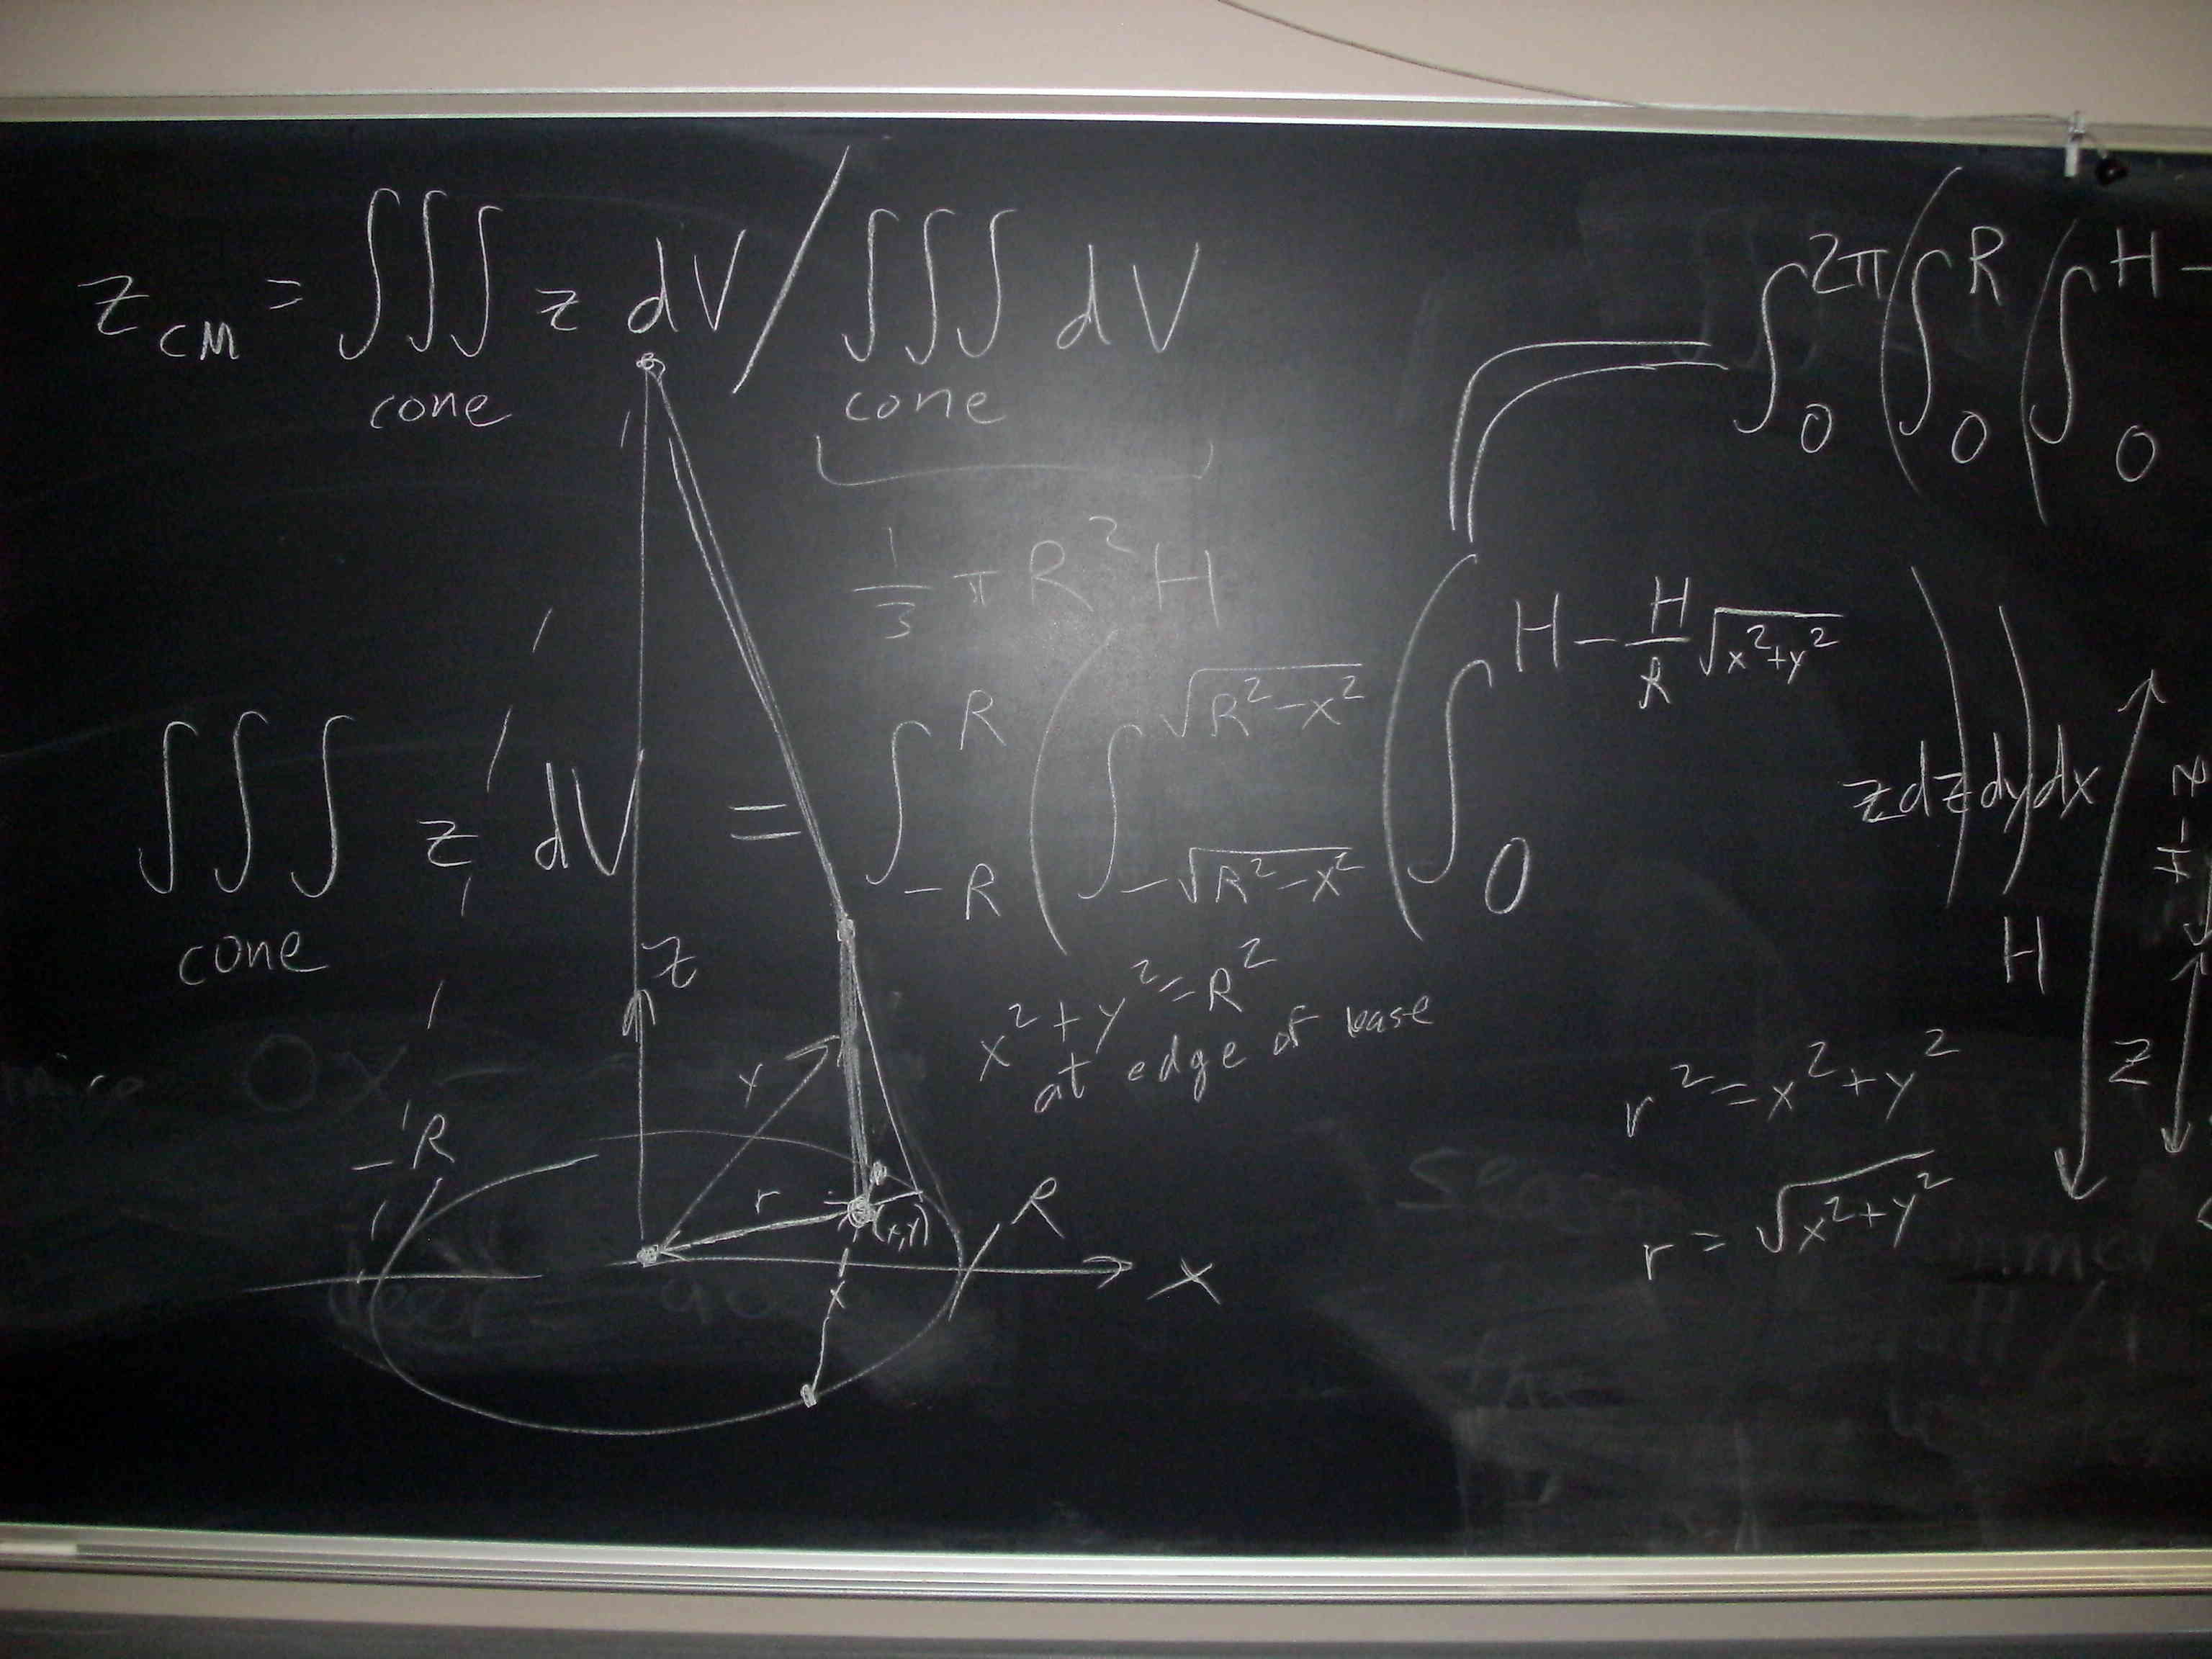 z_CM = ∫∫∫_cone z dV / ∫∫∫_cone dV
1/3 π R² H
∫_0^2π ( ∫_0^R ( ∫_0^H-
∫∫∫_cone z dV = ∫_-R^R ( ∫_-√(R²-x²)^√(R²-x²) ( ∫_0^(H - H/R √(x²+y²)) z dz ) dy ) dx
x² + y² = R²
at edge of base
H
H-z
z
r² = x² + y²
r = √(x²+y²)
z
y
-R
r
(x,y)
R
x
x